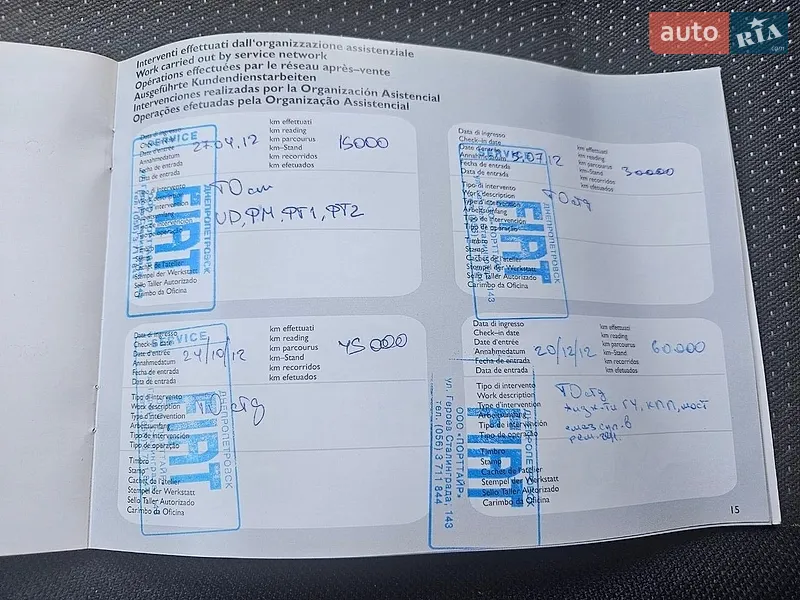 auto RIA.com
Interventi effettuati dall'organizzazione assistenziale
Work carried out by service network
Opérations effectuées par le réseau après-vente
Ausgeführte Kundendienstarbeiten
Intervenciones realizadas por la Organización Asistencial
Operações efetuadas pela Organização Assistencial
Data di ingresso
Check-in date
Date d'entrée
Annahmedatum
Fecha de entrada
Data de entrada
27.04.12
km effettuati
km reading
km parcourus
km-Stand
km recorridos
km efetuados
15000
SERVICE
FIAT
ДНЕПРОПЕТРОВСК
Tipo di intervento
Work description
Type d'intervention
Arbeitsumfang
Tipo de intervención
Tipo de operação
ТО
РМ, РТ1, РТ2
Cachet de l'atelier
Stempel der Werkstatt
Sello Taller Autorizado
Carimbo da Oficina
Data di ingresso
Check-in date
Date d'entrée
Annahmedatum
Fecha de entrada
Data de entrada
07/12
km effettuati
km reading
km parcourus
km-Stand
km recorridos
km efetuados
30000
SERVICE
FIAT
ДНЕПРОПЕТРОВСК
Tipo di intervento
Work description
Type d'intervention
Arbeitsumfang
Tipo de intervención
Tipo de operação
ТО
Timbro
Stamp
Cachet de l'atelier
Stempel der Werkstatt
Sello Taller Autorizado
Carimbo da Oficina
Data di ingresso
Check-in date
Date d'entrée
Annahmedatum
Fecha de entrada
Data de entrada
24/10/12
km effettuati
km reading
km parcourus
km-Stand
km recorridos
km efetuados
45000
SERVICE
FIAT
ДНЕПРОПЕТРОВСК
Tipo di intervento
Work description
Type d'intervention
Arbeitsumfang
Tipo de intervención
Tipo de operação
ТО
Timbro
Stamp
Cachet de l'atelier
Stempel der Werkstatt
Sello Taller Autorizado
Carimbo da Oficina
Data di ingresso
Check-in date
Date d'entrée
Annahmedatum
Fecha de entrada
Data de entrada
20/12/12
km effettuati
km reading
km parcourus
km-Stand
km recorridos
km efetuados
60000
FIAT
ДНЕПРОПЕТРОВСК
ООО «ПОРТТАЙР»
ул. Героев Сталинграда, 143
тел. (056) 3 711 844
Tipo di intervento
Work description
Type d'intervention
Arbeitsumfang
Tipo de intervención
Tipo de operação
ТО
ГУ, КПП, мост
Timbro
Stamp
Cachet de l'atelier
Stempel der Werkstatt
Sello Taller Autorizado
Carimbo da Oficina
15